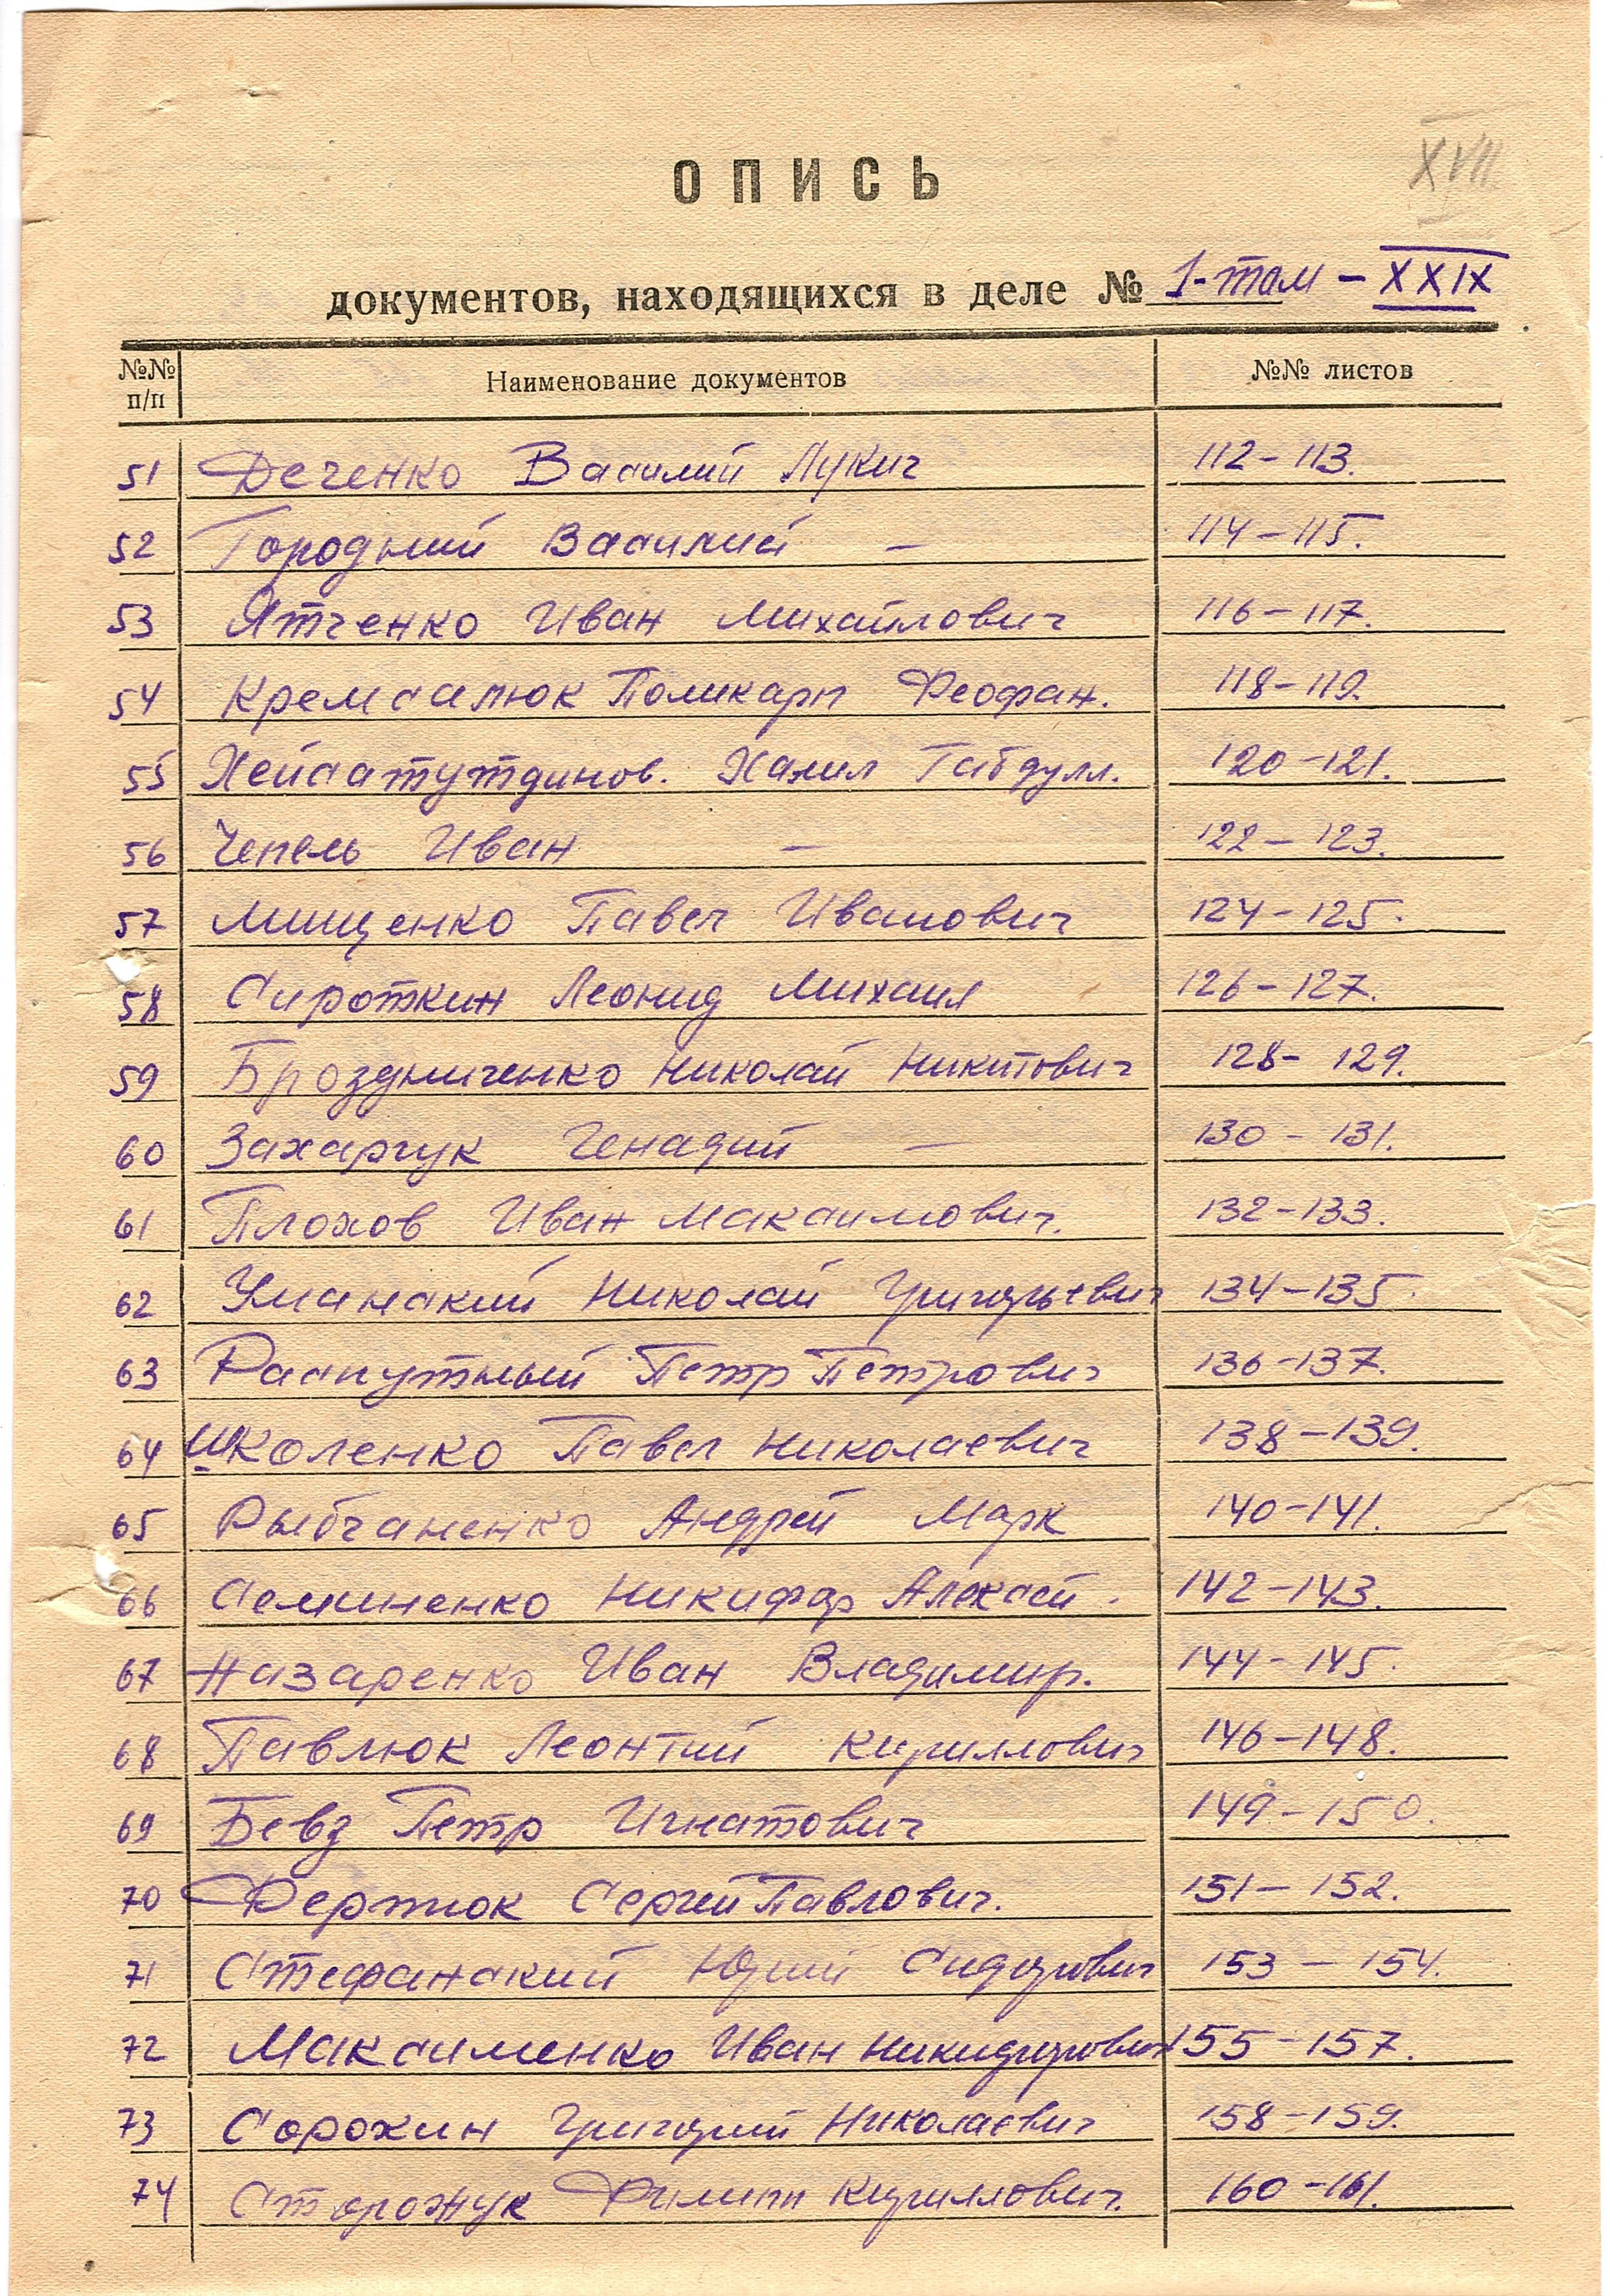 XVII
ОПИСЬ
документов, находящихся в деле № 1-том - XXIX
№№ п/п Наименование документов №№ листов
51 Деченко Василий Лукич 112-113.
52 Городний Василий — 114-115.
53 Ятченко Иван Михайлович 116-117.
54 Кремсалюк Поликарп Феофан. 118-119.
55 Хейсатутдинов. Халил Габдулл. 120-121.
56 Чепель Иван — 122-123.
57 Мищенко Павел Иванович 124-125.
58 Сироткин Леонид Михаил 126-127.
59 Броздниченко Николай Никитович 128-129.
60 Захарчук Генадий — 130-131.
61 Плохов Иван Максимович. 132-133.
62 Уманский Николай Григорьевич 134-135.
63 Распутный Петр Петрович 136-137.
64 Школенко Павел Николаевич 138-139.
65 Рыбчаненко Андрей Марк 140-141.
66 Семиненко Никифор Алексей. 142-143.
67 Назаренко Иван Владимир. 144-145.
68 Павлюк Леонтий Кириллович 146-148.
69 Бевз Петр Игнатович 149-150.
70 Фертюк Сергей Павлович. 151-152.
71 Стефанский Юрий Сидорович 153-154.
72 Максименко Иван Никифорович 155-157.
73 Сорохин Григорий Николаевич 158-159.
74 Сторожук Филипп Кириллович. 160-161.